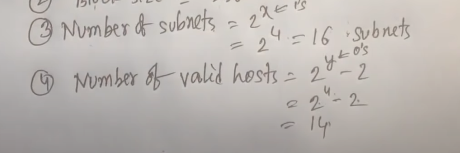 ③ Number of subnets = 2^x ← 1's
= 2^4 = 16 subnets
④ Number of valid hosts = 2^y ← 0's - 2
= 2^4 - 2
= 14